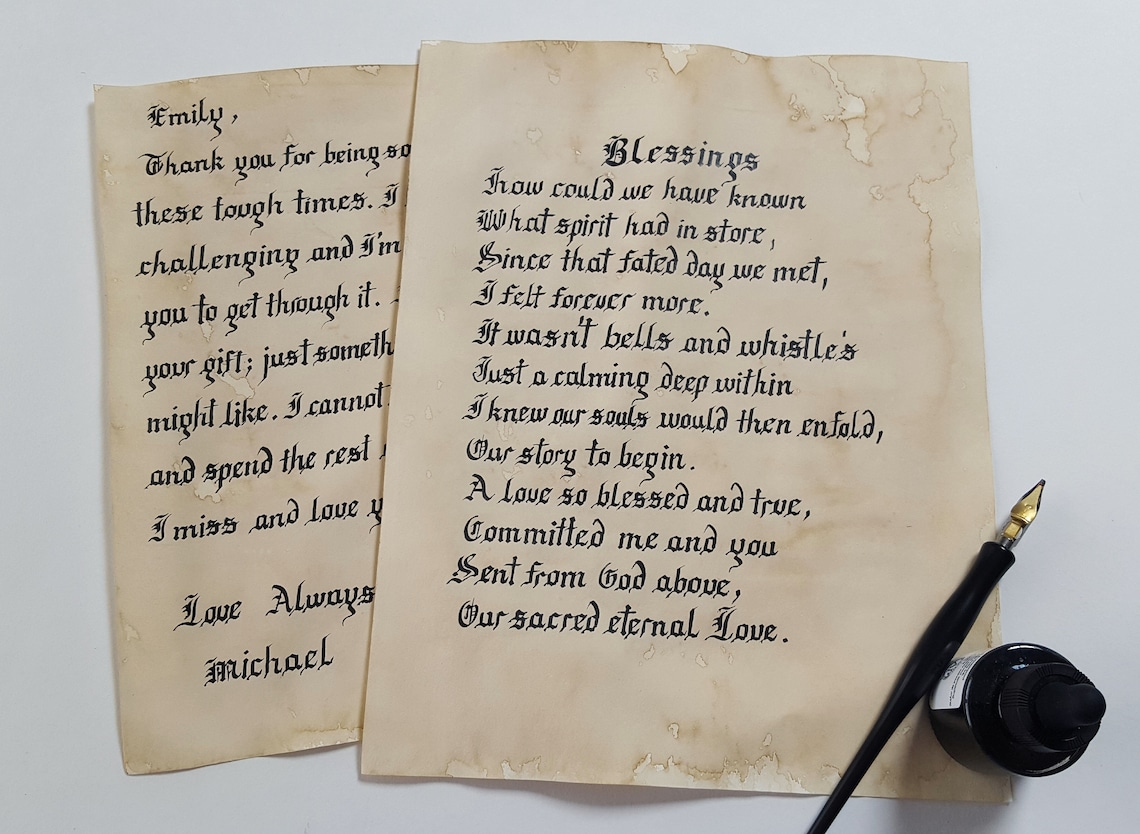 Emily,
Thank you for being so
these tough times. I
challenging and I'm
you to get through it.
your gift; just someth
might like. I cannot
and spend the rest
I miss and love y
Love Always
Michael
Blessings
how could we have known
What spirit had in store,
Since that fated day we met,
I felt forever more.
It wasn't bells and whistle's
Just a calming deep within
I knew our souls would then enfold,
Our story to begin.
A love so blessed and true,
Committed me and you
Sent from God above,
Our sacred eternal Love.